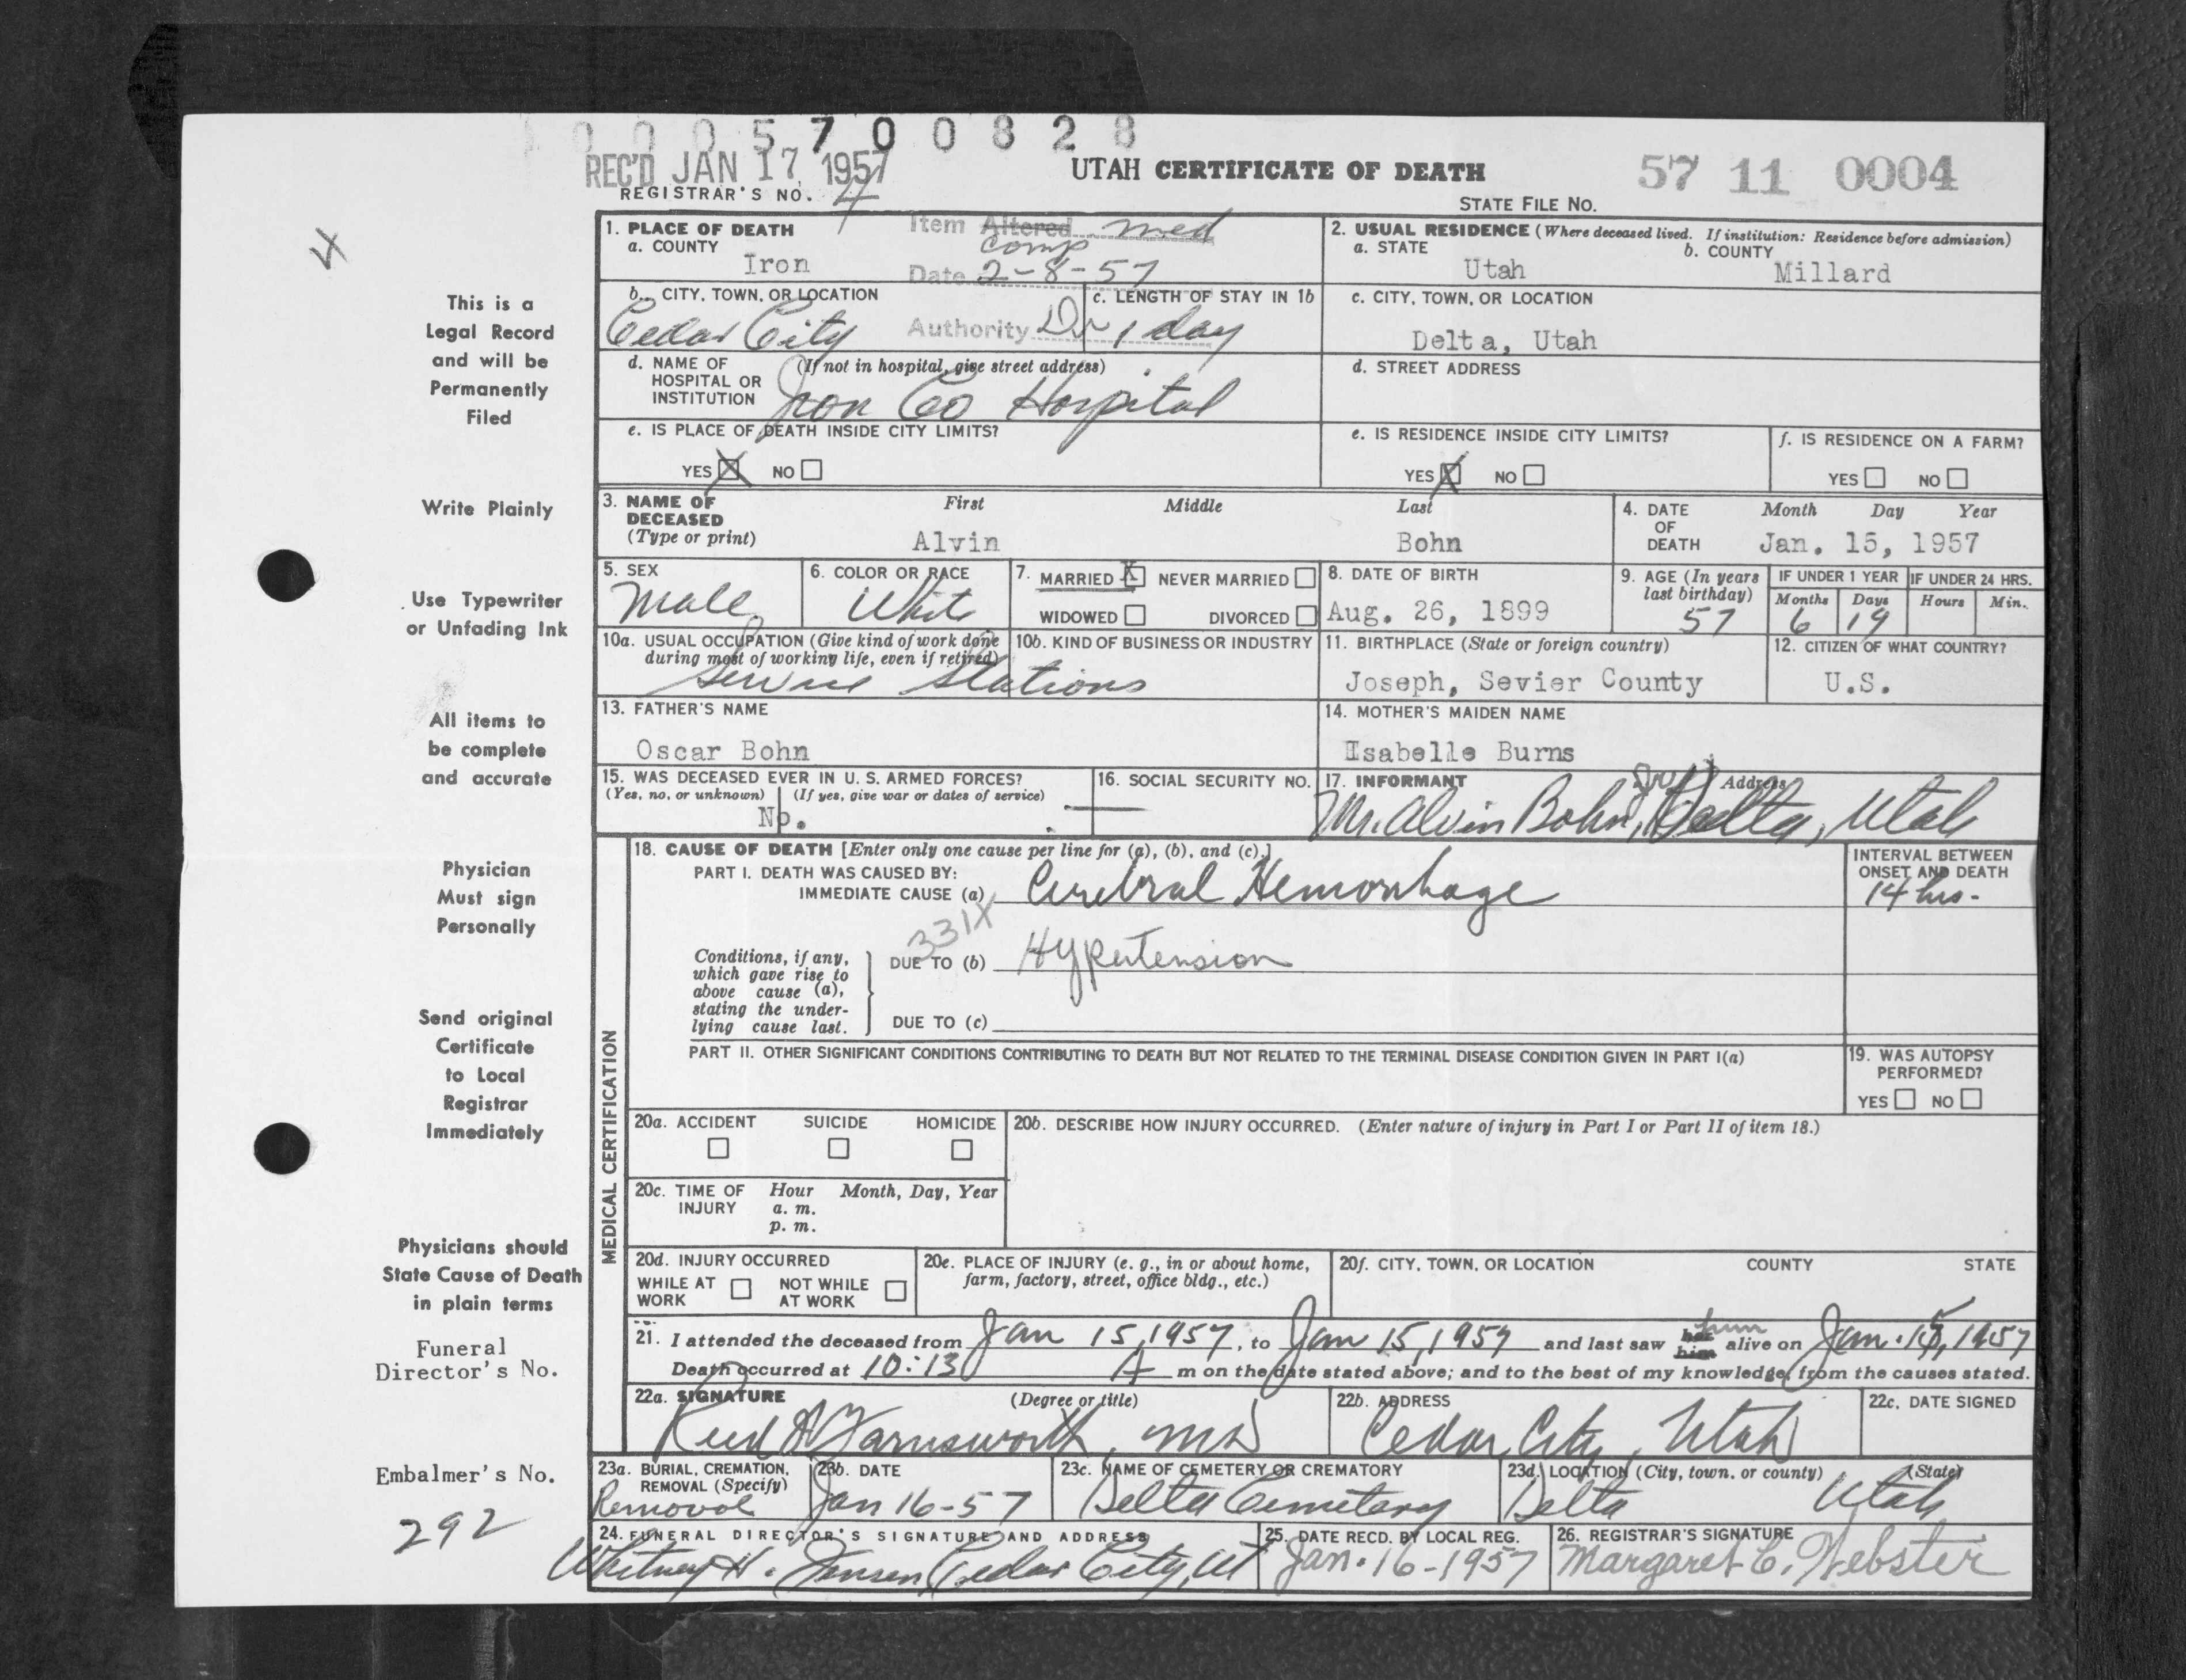 0 0 0 5 7 0 0 8 2 8
REC'D JAN 17, 1957
UTAH CERTIFICATE OF DEATH
57 11 0004
REGISTRAR'S NO. 4
STATE FILE NO.
4
1. PLACE OF DEATH
a. COUNTY
Iron
Item Altered med
comp
Date 2-8-57
2. USUAL RESIDENCE (Where deceased lived. If institution: Residence before admission)
a. STATE
Utah
b. COUNTY
Millard
b. CITY, TOWN, OR LOCATION
Cedar City
Authority Dr
c. LENGTH OF STAY IN 1b
1 day
c. CITY, TOWN, OR LOCATION
Delta, Utah
d. NAME OF HOSPITAL OR INSTITUTION
(If not in hospital, give street address)
Iron Co Hospital
d. STREET ADDRESS
e. IS PLACE OF DEATH INSIDE CITY LIMITS?
YES X NO
e. IS RESIDENCE INSIDE CITY LIMITS?
YES X NO
f. IS RESIDENCE ON A FARM?
YES NO
3. NAME OF DECEASED
(Type or print)
First Middle Last
Alvin Bohn
4. DATE OF DEATH
Month Day Year
Jan. 15, 1957
5. SEX
Male
6. COLOR OR RACE
White
7. MARRIED X NEVER MARRIED
WIDOWED DIVORCED
8. DATE OF BIRTH
Aug. 26, 1899
9. AGE (In years last birthday)
57
IF UNDER 1 YEAR
Months Days
6 19
IF UNDER 24 HRS.
Hours Min.
10a. USUAL OCCUPATION (Give kind of work done during most of working life, even if retired)
10b. KIND OF BUSINESS OR INDUSTRY
Service Stations
11. BIRTHPLACE (State or foreign country)
Joseph, Sevier County
12. CITIZEN OF WHAT COUNTRY?
U.S.
13. FATHER'S NAME
Oscar Bohn
14. MOTHER'S MAIDEN NAME
Isabelle Burns
15. WAS DECEASED EVER IN U. S. ARMED FORCES?
(Yes, no, or unknown) (If yes, give war or dates of service)
No.
16. SOCIAL SECURITY NO.
17. INFORMANT Address
Mr. Alvin Bohn, Delta, Utah
MEDICAL CERTIFICATION
18. CAUSE OF DEATH [Enter only one cause per line for (a), (b), and (c).]
PART I. DEATH WAS CAUSED BY:
IMMEDIATE CAUSE (a) Cerebral Hemorrhage
INTERVAL BETWEEN ONSET AND DEATH
14 hrs.
331X
Conditions, if any, which gave rise to above cause (a), stating the underlying cause last.
DUE TO (b) Hypertension
DUE TO (c)
PART II. OTHER SIGNIFICANT CONDITIONS CONTRIBUTING TO DEATH BUT NOT RELATED TO THE TERMINAL DISEASE CONDITION GIVEN IN PART I(a)
19. WAS AUTOPSY PERFORMED?
YES NO
20a. ACCIDENT SUICIDE HOMICIDE
20b. DESCRIBE HOW INJURY OCCURRED. (Enter nature of injury in Part I or Part II of item 18.)
20c. TIME OF INJURY
Hour Month, Day, Year
a. m.
p. m.
20d. INJURY OCCURRED
WHILE AT WORK NOT WHILE AT WORK
20e. PLACE OF INJURY (e. g., in or about home, farm, factory, street, office bldg., etc.)
20f. CITY, TOWN, OR LOCATION COUNTY STATE
21. I attended the deceased from Jan 15, 1957, to Jan 15, 1957 and last saw her him him alive on Jan. 15, 1957
Death occurred at 10:13 A m on the date stated above; and to the best of my knowledge, from the causes stated.
22a. SIGNATURE (Degree or title)
Farnsworth, MD
22b. ADDRESS
Cedar City, Utah
22c. DATE SIGNED
23a. BURIAL, CREMATION, REMOVAL (Specify)
Removal
23b. DATE
Jan 16-57
23c. NAME OF CEMETERY OR CREMATORY
Delta Cemetery
23d. LOCATION (City, town, or county) (State)
Delta Utah
24. FUNERAL DIRECTOR'S SIGNATURE AND ADDRESS
Whitney H. Jensen, Cedar City, Ut
25. DATE RECD. BY LOCAL REG.
Jan. 16-1957
26. REGISTRAR'S SIGNATURE
Margaret C. Webster
This is a
Legal Record
and will be
Permanently
Filed
Write Plainly
Use Typewriter
or Unfading Ink
All items to
be complete
and accurate
Physician
Must sign
Personally
Send original
Certificate
to Local
Registrar
Immediately
Physicians should
State Cause of Death
in plain terms
Funeral
Director's No.
Embalmer's No.
292